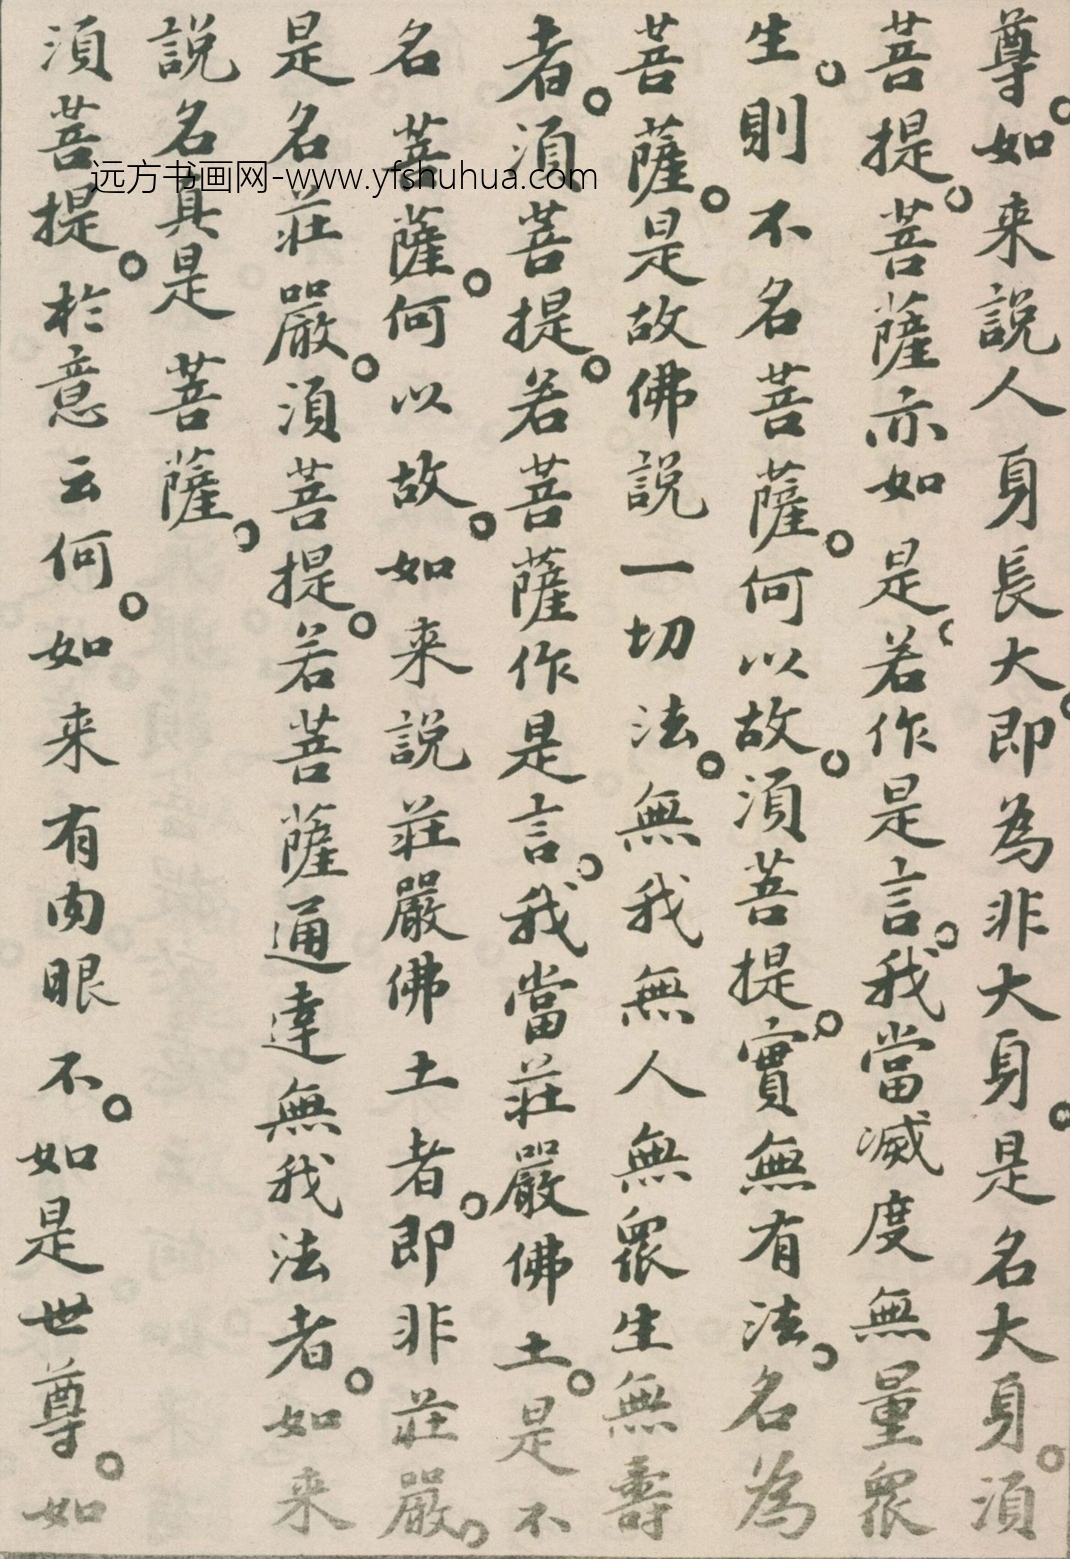 尊。如来說人身長大。即為非大身。是名大身。須
菩提。菩薩亦如是。若作是言。我當滅度無量眾
生。則不名菩薩。何以故。須菩提。實無有法。名為
菩薩。是故佛說一切法。無我無人無眾生無壽
者。須菩提。若菩薩作是言。我當莊嚴佛土。是不
名菩薩。何以故。如来說莊嚴佛土者。即非莊嚴。
是名莊嚴。須菩提。若菩薩通達無我法者。如来
說名真是菩薩。
須菩提。於意云何。如来有肉眼不。如是世尊。如
远方书画网-www.yfshuhua.com